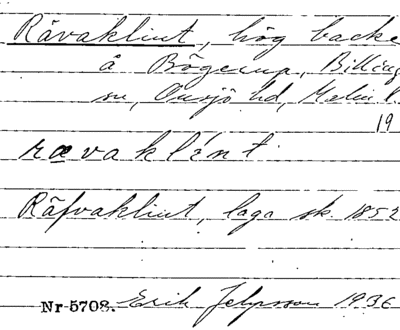 Rävaklint, hög backe
å Bögerup, Billinge
sn, Onsjö hd, Malm. l.
19
rævaklint
Räfvaklint, laga sk. 1852
Nr 5708. Erik Jepsson 1936